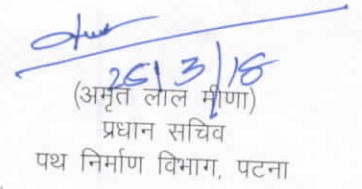 26/3/18
(अमृत लाल मीणा)
प्रधान सचिव
पथ निर्माण विभाग, पटना